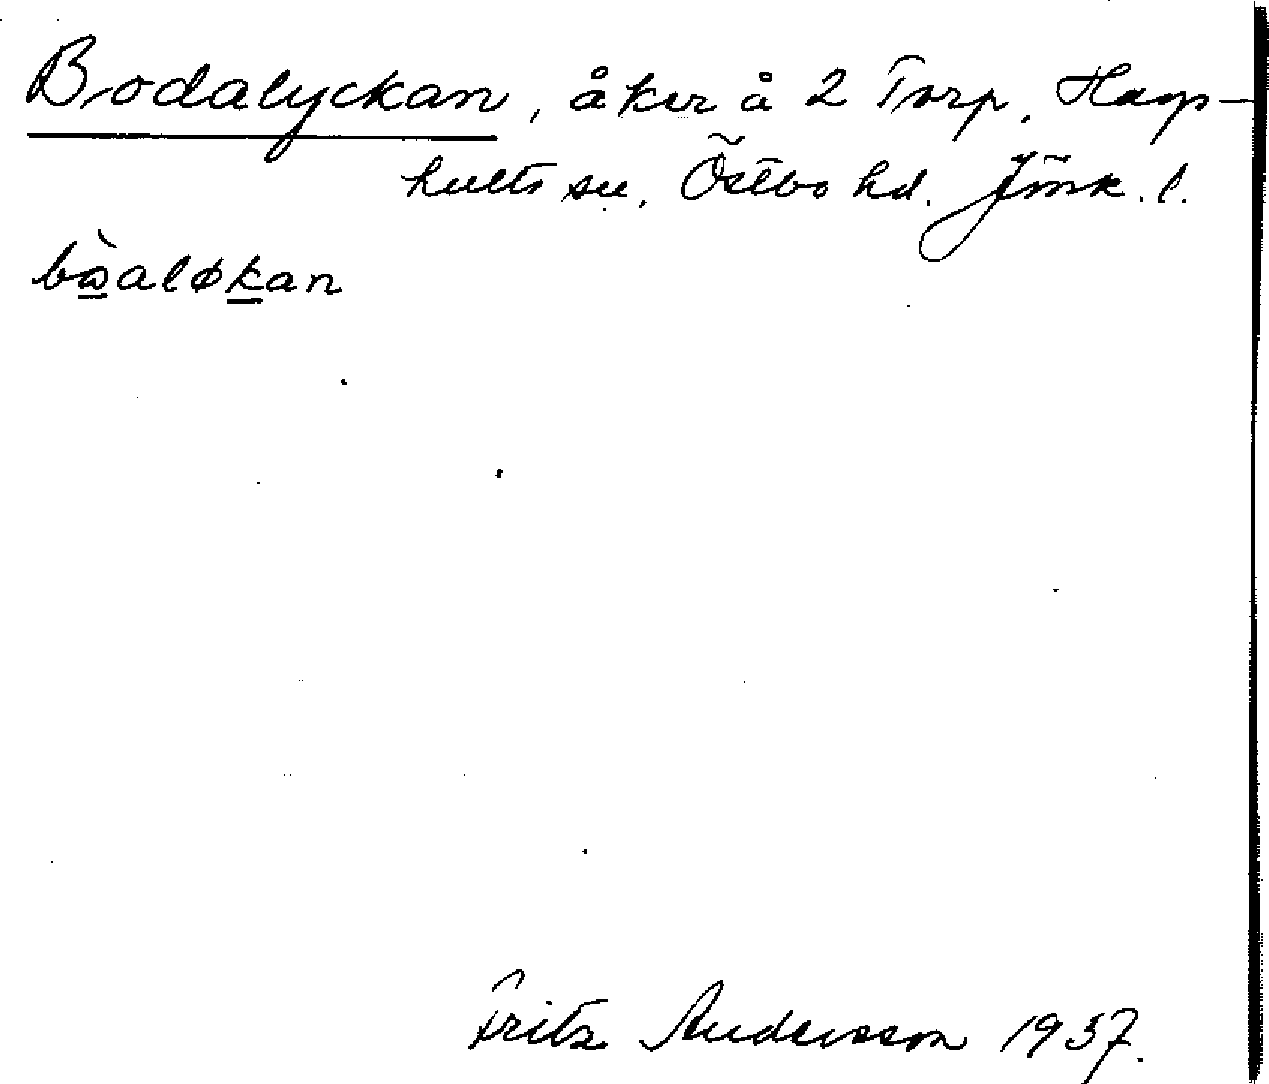 Bodalyckan, åker å 2 Torp, Hags-
hults sn, Östbo hd. Jönk. l.
bωàaløkan
Fritz Andersson 1937.